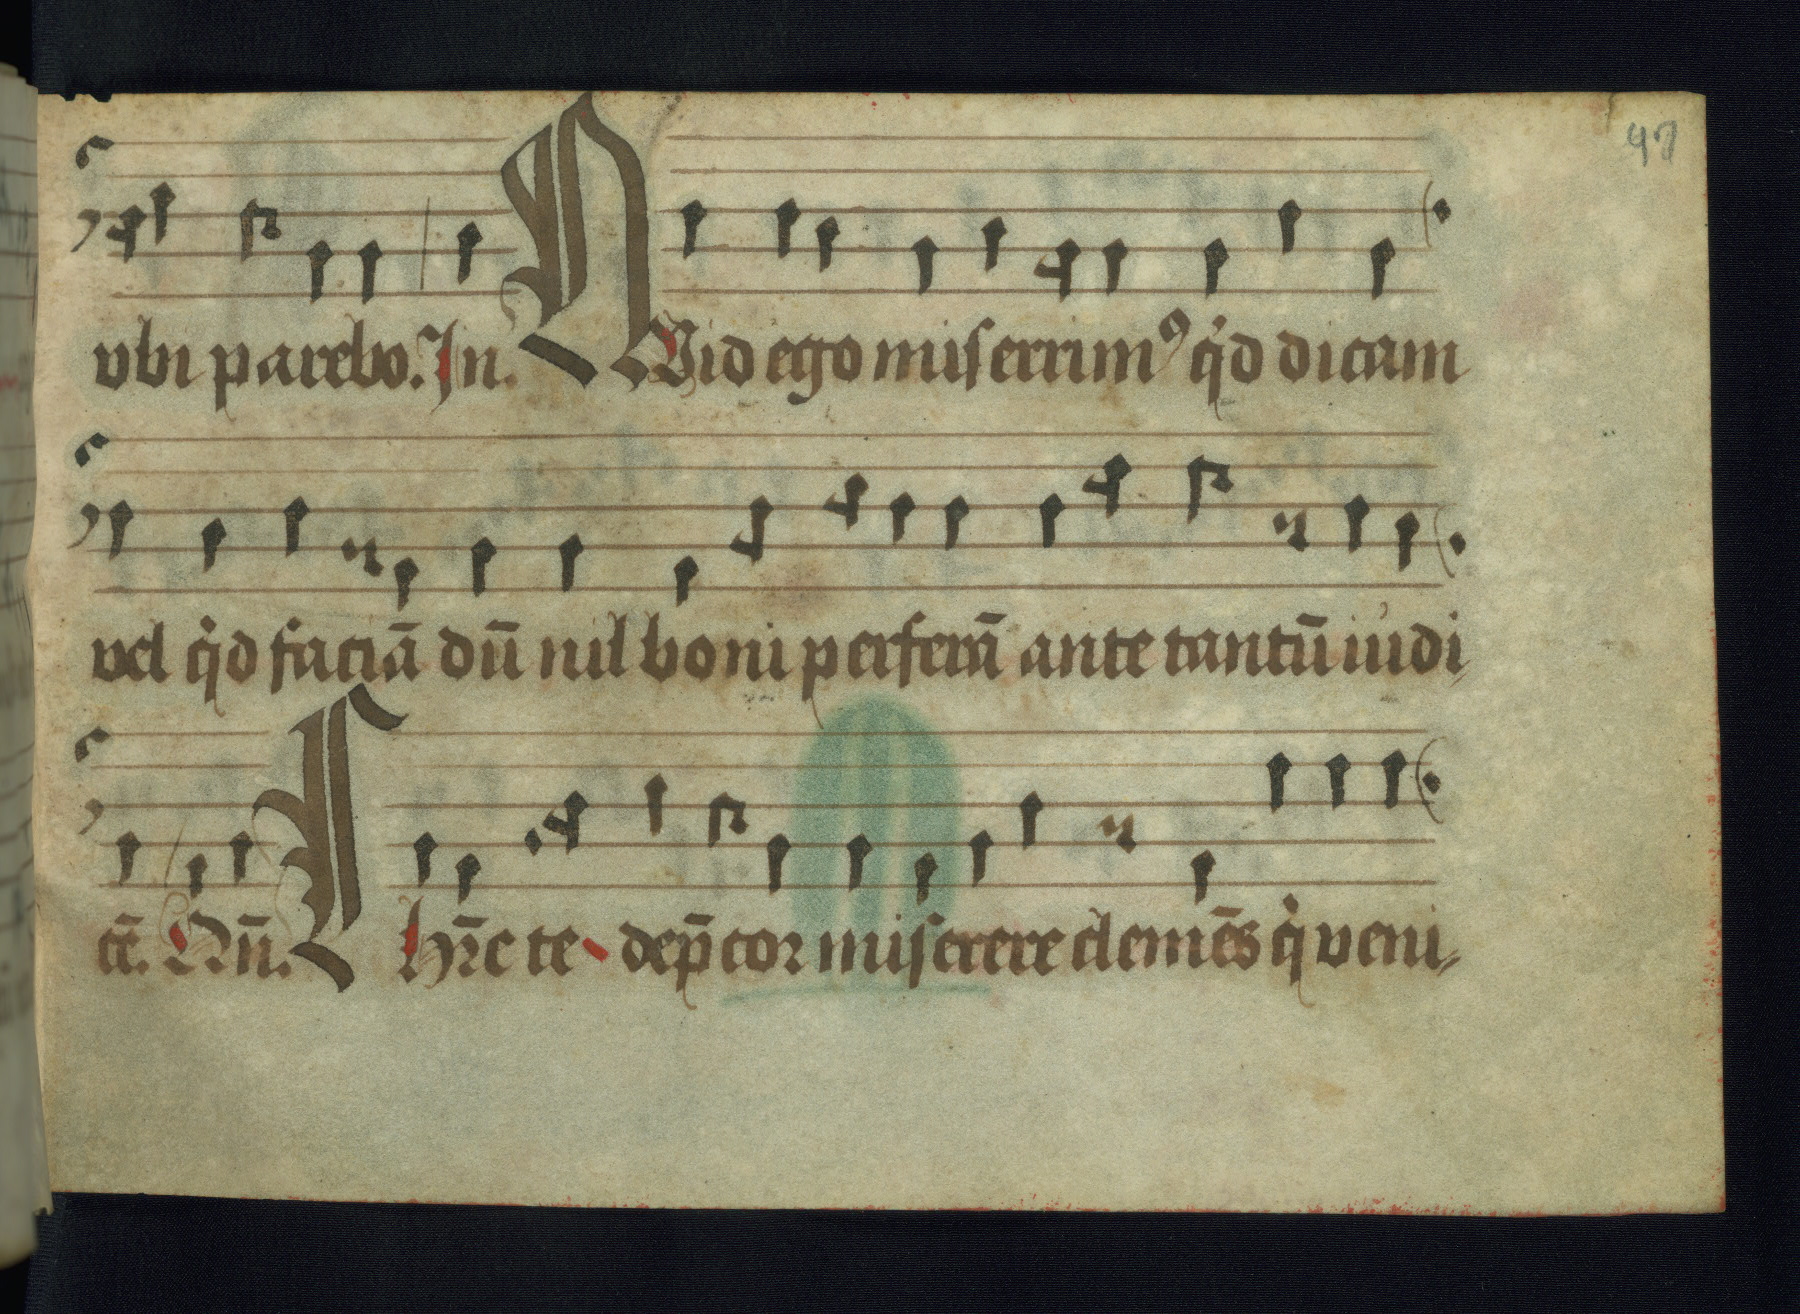 97
vbi parebo. In. QVid ego miserrimꝰ qͥd dicam
vel qͥd faciā dū nil boni perferā ante tantū iudi,
cē. Nū. Chr̄e te dep̄cor miserere clemēs qͥ veni,